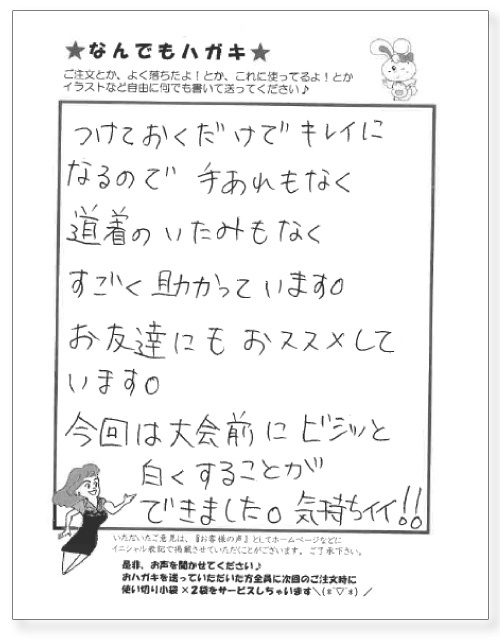 ★なんでもハガキ★
ご注文とか、よく落ちたよ！とか、これに使ってるよ！とか
イラストなど自由に何でも書いて送ってください♪
つけておくだけで キレイに
なるので 手あれもなく
道着の いたみもなく
すごく 助かって います。
お友達にも おススメして
います。
今回は大会前に ビシッと
白くすることが
できました。気持ちイイ!!
いただいたご意見は、『お客様の声』としてホームページなどに
イニシャル表記で掲載させていただくことがございます。ご了承下さい。
是非、お声を聞かせてください♪
おハガキを送っていただいた方全員に次回のご注文時に
使い切り小袋×2袋をサービスしちゃいます＼(*´▽`*)／